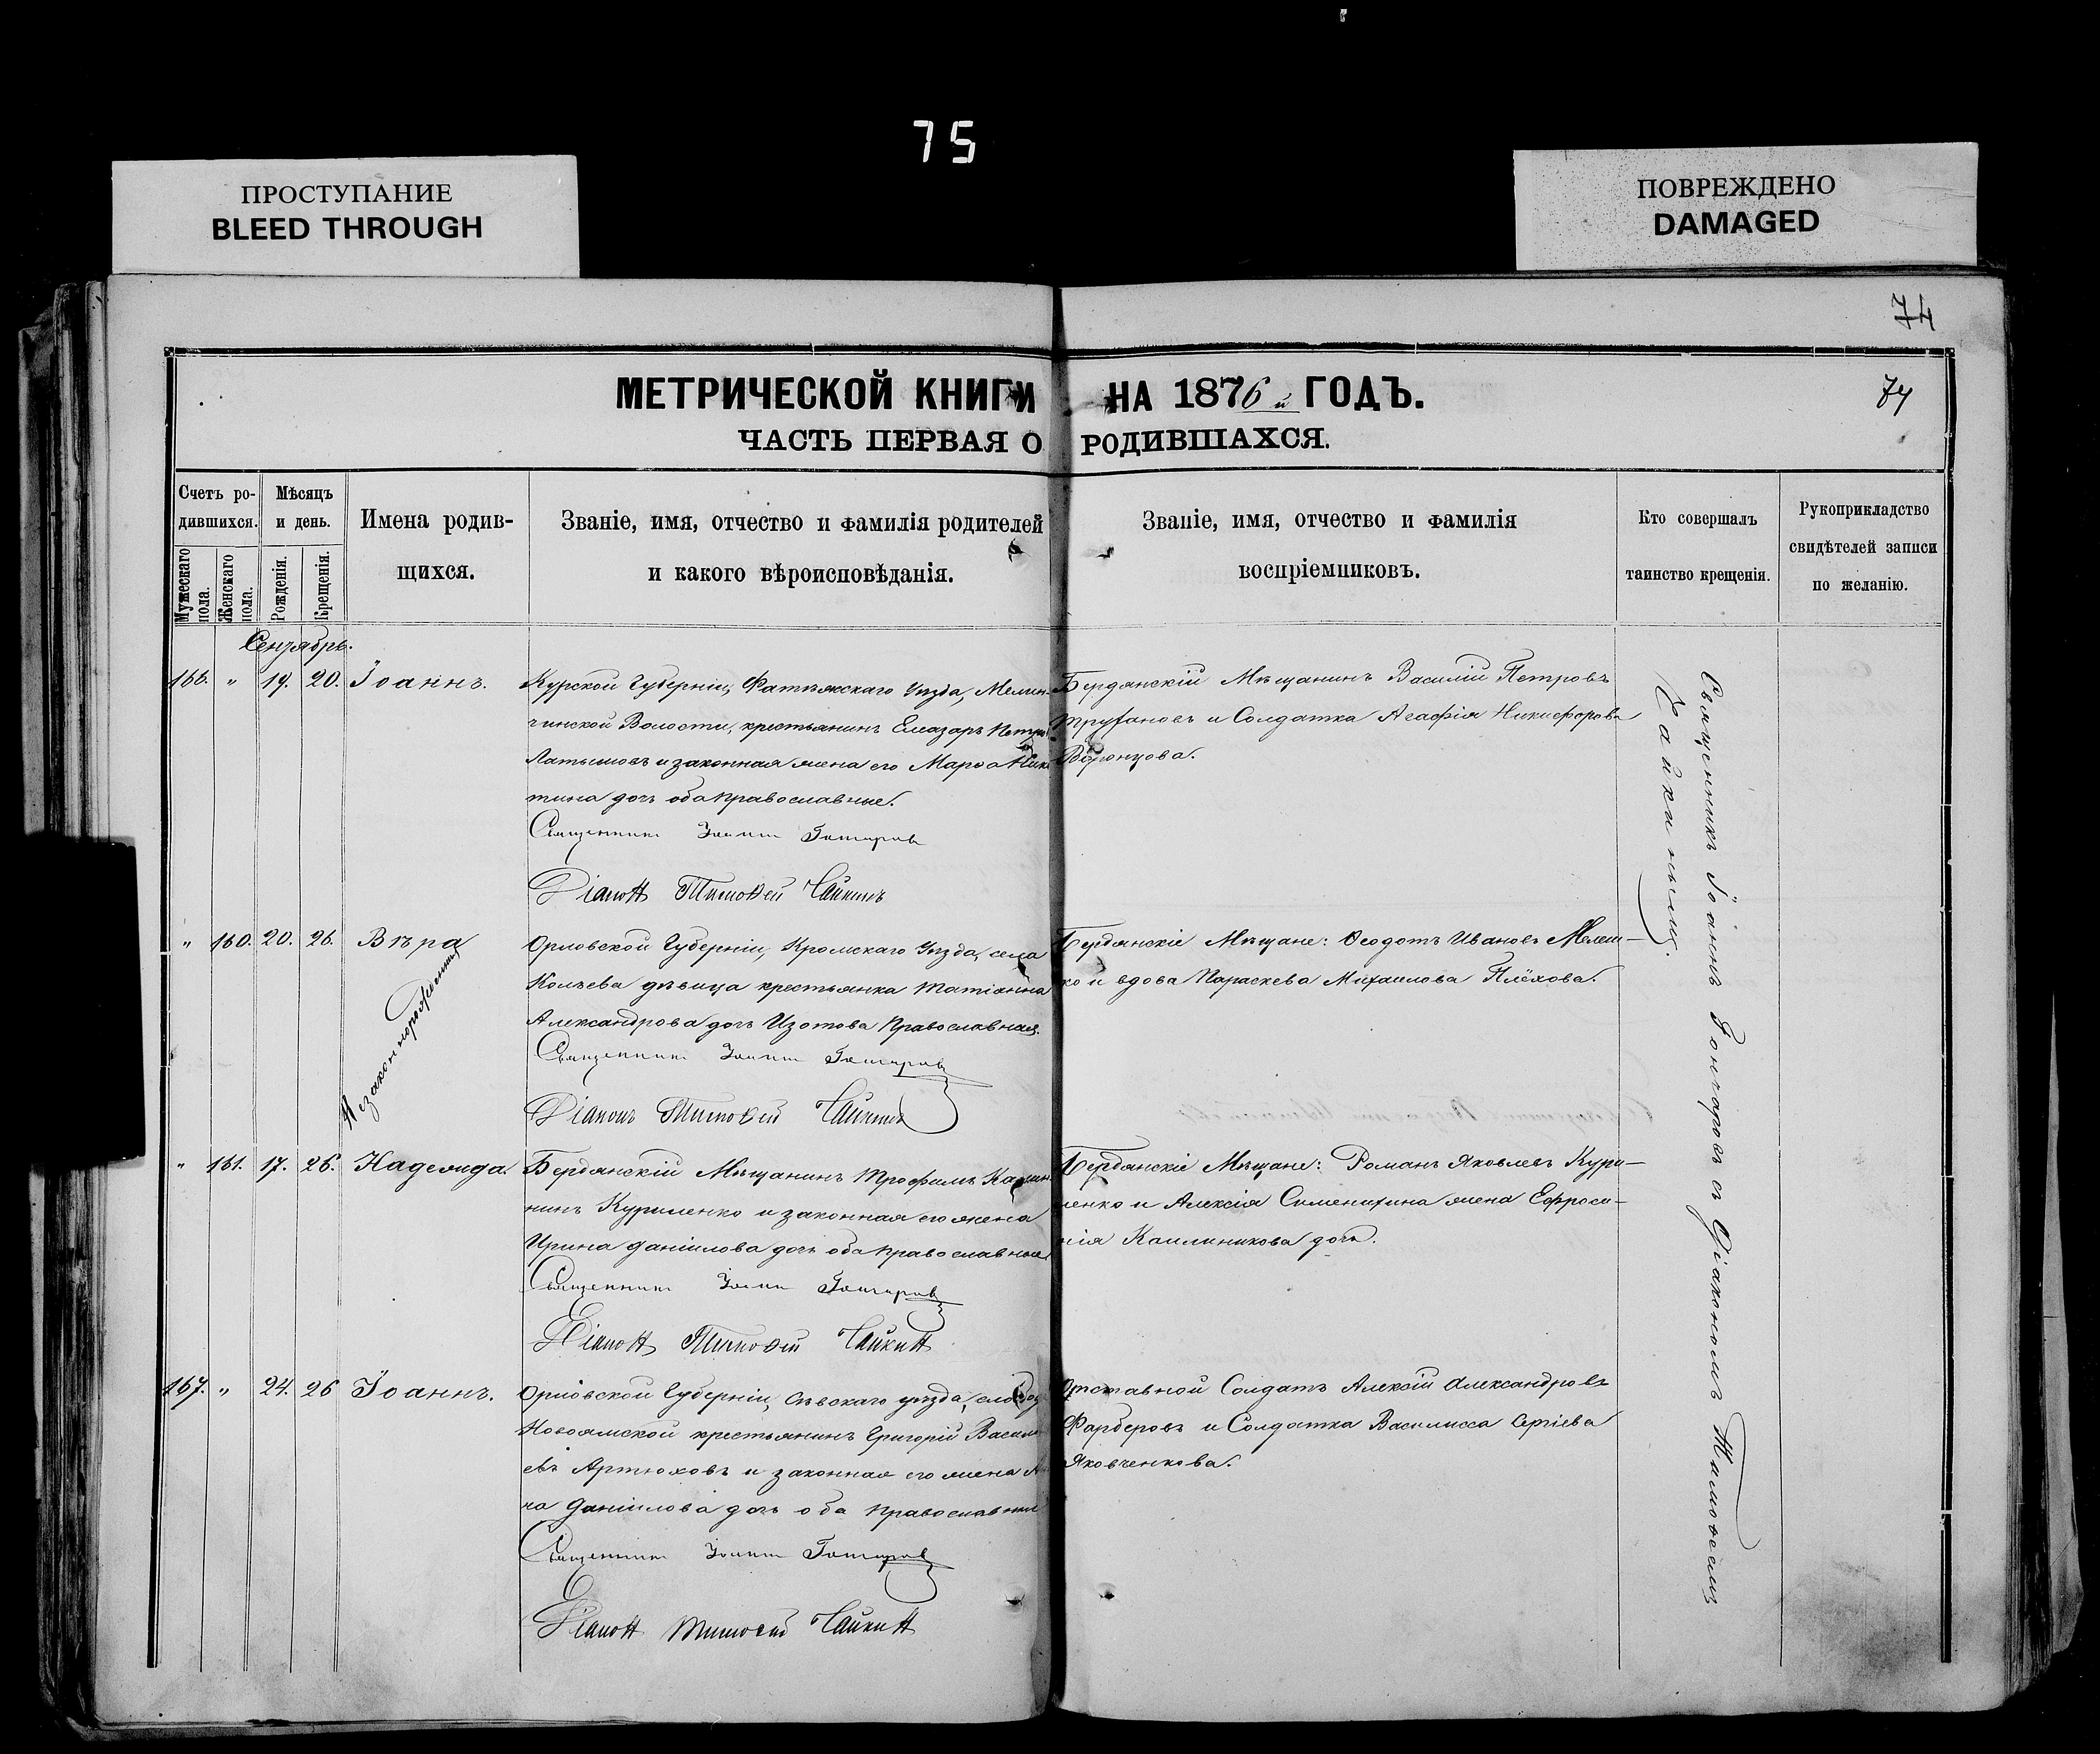 75
ПРОСТУПАНИЕ
BLEED THROUGH
ПОВРЕЖДЕНО
DAMAGED
74
74
МЕТРИЧЕСКОЙ КНИГИ НА 1876 й ГОДЪ.
ЧАСТЬ ПЕРВАЯ О РОДИВШАХСЯ.
Счетъ ро-
дившихся.
Мужескаго пола.
Женскаго пола.
Мѣсяцъ
и день.
Рожденія.
Крещенія.
Имена родив-
щихся.
Званіе, имя, отчество и фамилія родителей
и какого вѣроисповѣданія.
Званіе, имя, отчество и фамилія
воспріемниковъ.
Кто совершалъ
таинство крещенія.
Рукоприкладство
свидѣтелей записи
по желанію.
Сентябрь.
166. " 19. 20. Іоаннъ.
Курской Губерніи, Фатежскаго Уѣзда,
чинской Волости, крестьянинъ Елеазаръ Петров
Латышовъ и законная жена его Марѳа Ники
тина дочь оба православные.
Священникъ Іоаннъ Гончаровъ
Діакон Тимоѳей Чайкинъ
Бердянскій Мѣщанинъ Василій Петровъ
Труфановъ и Солдатка Агафія Никифорова
Воронцова.
" 160. 20. 26. Вѣра
Незаконнорожденная
Орловской Губерніи, Кромскаго Уѣзда, села
девица крестьянка Татіанна
Александрова дочь Изотова Православная.
Священникъ Іоаннъ Гончаровъ
Діаконъ Тимоѳей Чайкинъ
Бердянскіе Мѣщане: Ѳеодотъ Ивановъ Мелеш-
ко и вдова Параскева Михаилова Плёхова.
" 161. 17. 26. Надежда.
Бердянскій Мѣщанинъ Трофимъ Калин
нинъ Куриленко и законная его жена
Ирина Даніилова дочь оба православные
Священникъ Іоаннъ Гончаровъ
Діакон Тимоѳей Чайкин
Бердянскіе Мѣщане: Романъ Яковлевъ Кури-
ленко и Алексія жена Ефроси-
нія Каллиникова дочь.
167. " 24. 26 Іоаннъ.
Орловской Губерніи, Сѣвскаго уѣзда, слобод
Новоямской крестьянинъ Григорій Василь
евъ Артюховъ и законная его жена Ан
на Даніилова дочь оба православные
Священникъ Іоаннъ Гончаровъ
Діакон Тимоѳей Чайкин
Отставной Солдатъ Алексій Александровъ
Фарберовъ и Солдатка Василисса Сергіева
Яковченкова.
Священникъ Іоаннъ Гончаровъ съ Діакономъ Тимоѳеемъ
Чайкинымъ.